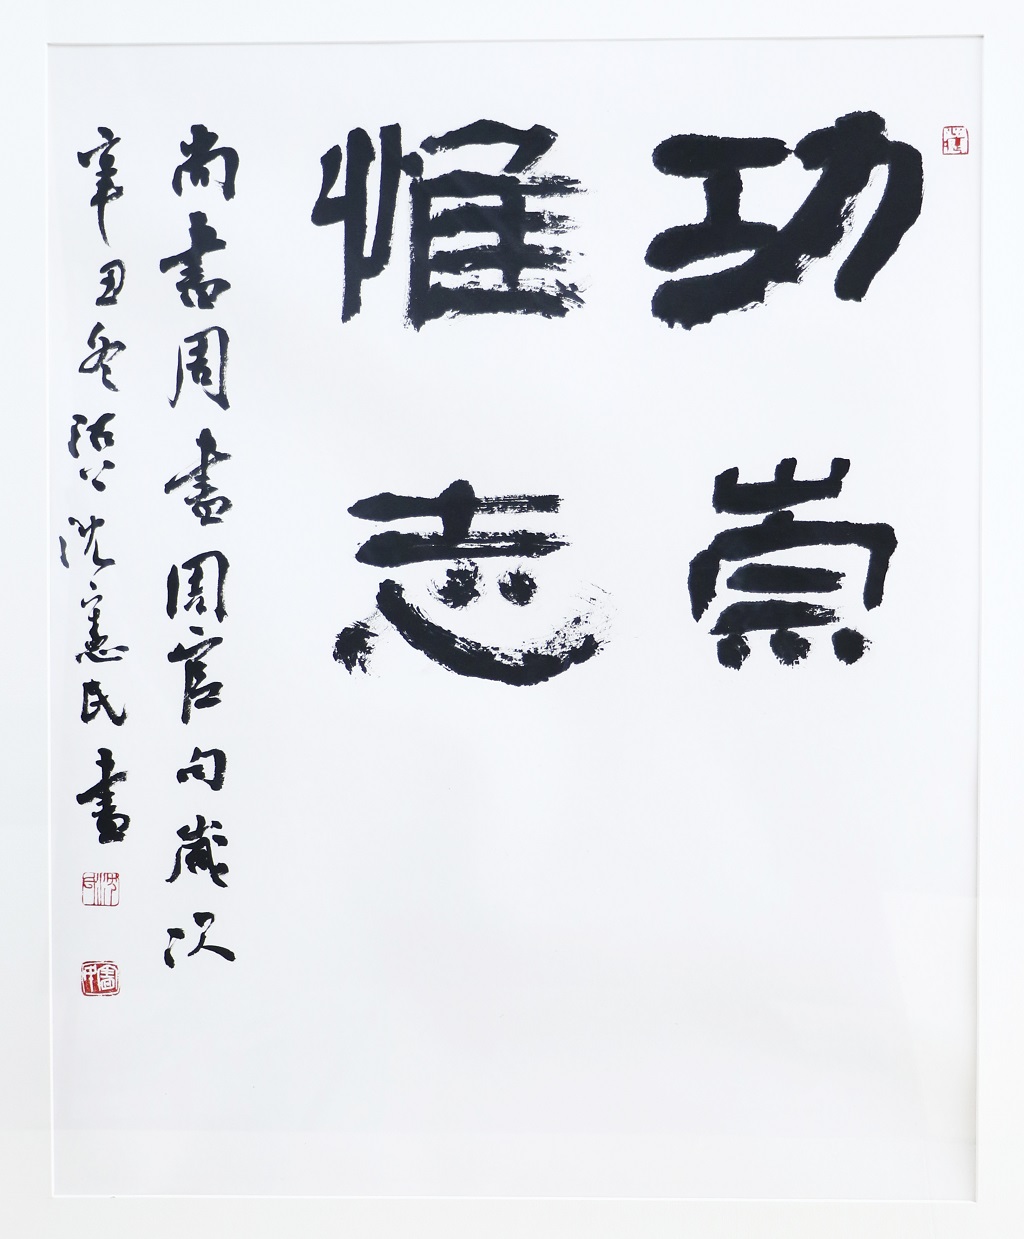 功崇
惟志
尚書周書周官句歲次
辛丑冬沈憲民書